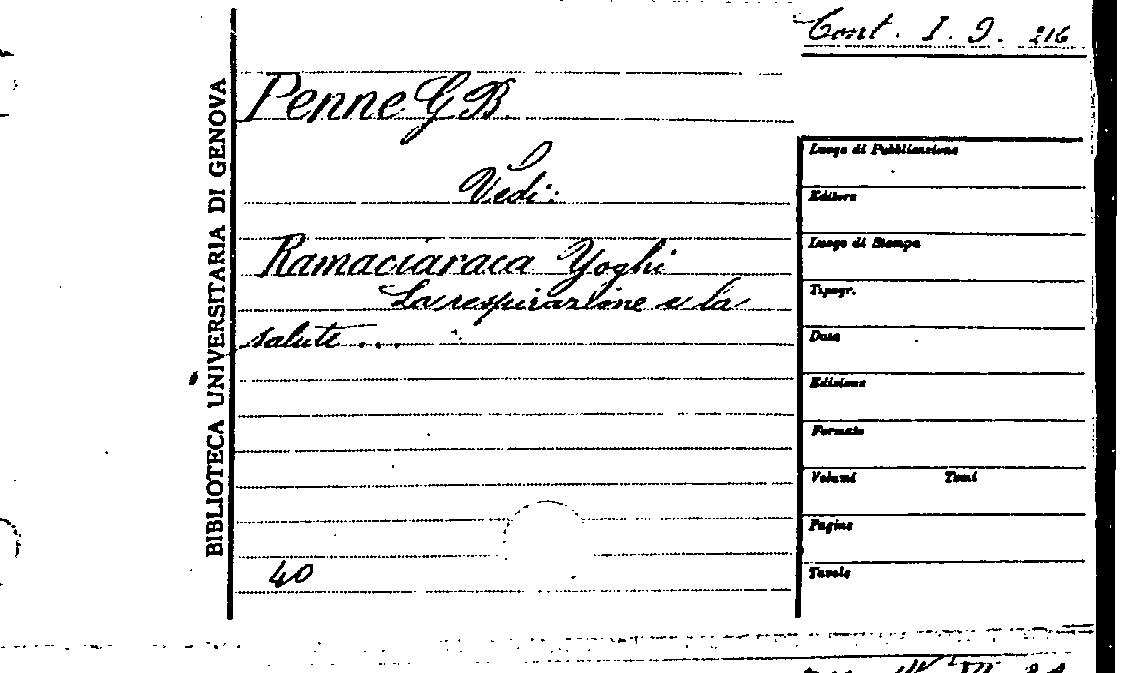 Cont. I. 9. 216
BIBLIOTECA UNIVERSITARIA DI GENOVA
Penne G B.
Vedi:
Ramaciaraca Yoghi
La respirazione e la
salute ...
40
Luogo di Pubblicazione
Editore
Luogo di Stampa
Tipogr.
Data
Edizione
Formato
Volumi Tomi
Pagine
Tavole